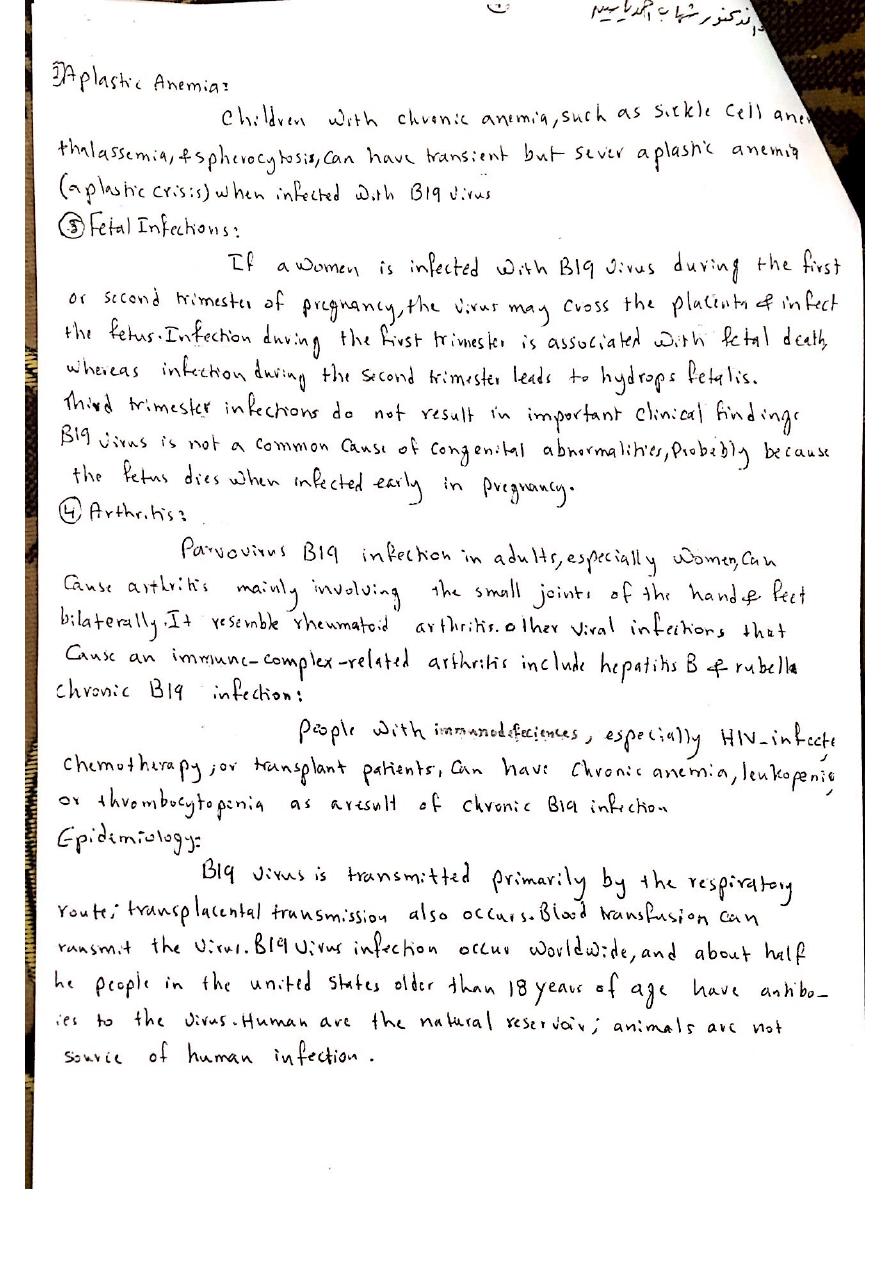 الدكتور شهاب احمد ياسين
Aplastic Anemia:
Children with chronic anemia, such as sickle cell
thalassemia, & spherocytosis, can have transient but sever aplastic anemia
(aplastic crisis) when infected with B19 virus
③ Fetal Infections:
If a women is infected with B19 virus during the first
or second trimester of pregnancy, the virus may cross the placenta & infect
the fetus. Infection during the first trimester is associated with fetal death,
whereas infection during the second trimester leads to hydrops fetalis.
Third trimester infections do not result in important clinical findings
B19 virus is not a common cause of congenital abnormalities, probebly because
the fetus dies when infected early in pregnancy.
④ Arthritis:
Parvovirus B19 infection in adults, especially women, can
cause arthritis mainly involving the small joints of the hand & feet
bilaterally. It resemble rheumatoid arthritis. other viral infections that
cause an immune-complex-related arthritis include hepatitis B & rubella
chronic B19 infection:
people with immunodefeciences, especially HIV-infecte
chemotherapy, or transplant patients, can have chronic anemia, leukopenia,
or thrombocytopenia as aresult of chronic B19 infection
Epidemiology:
B19 virus is transmitted primarily by the respiratory
route; transplacental transmission also occurs. Blood transfusion can
ransmit the virus. B19 virus infection occur worldwide, and about half
he people in the united states older than 18 years of age have antibo-
ies to the virus. Human are the natural reservoir; animals are not
source of human infection.